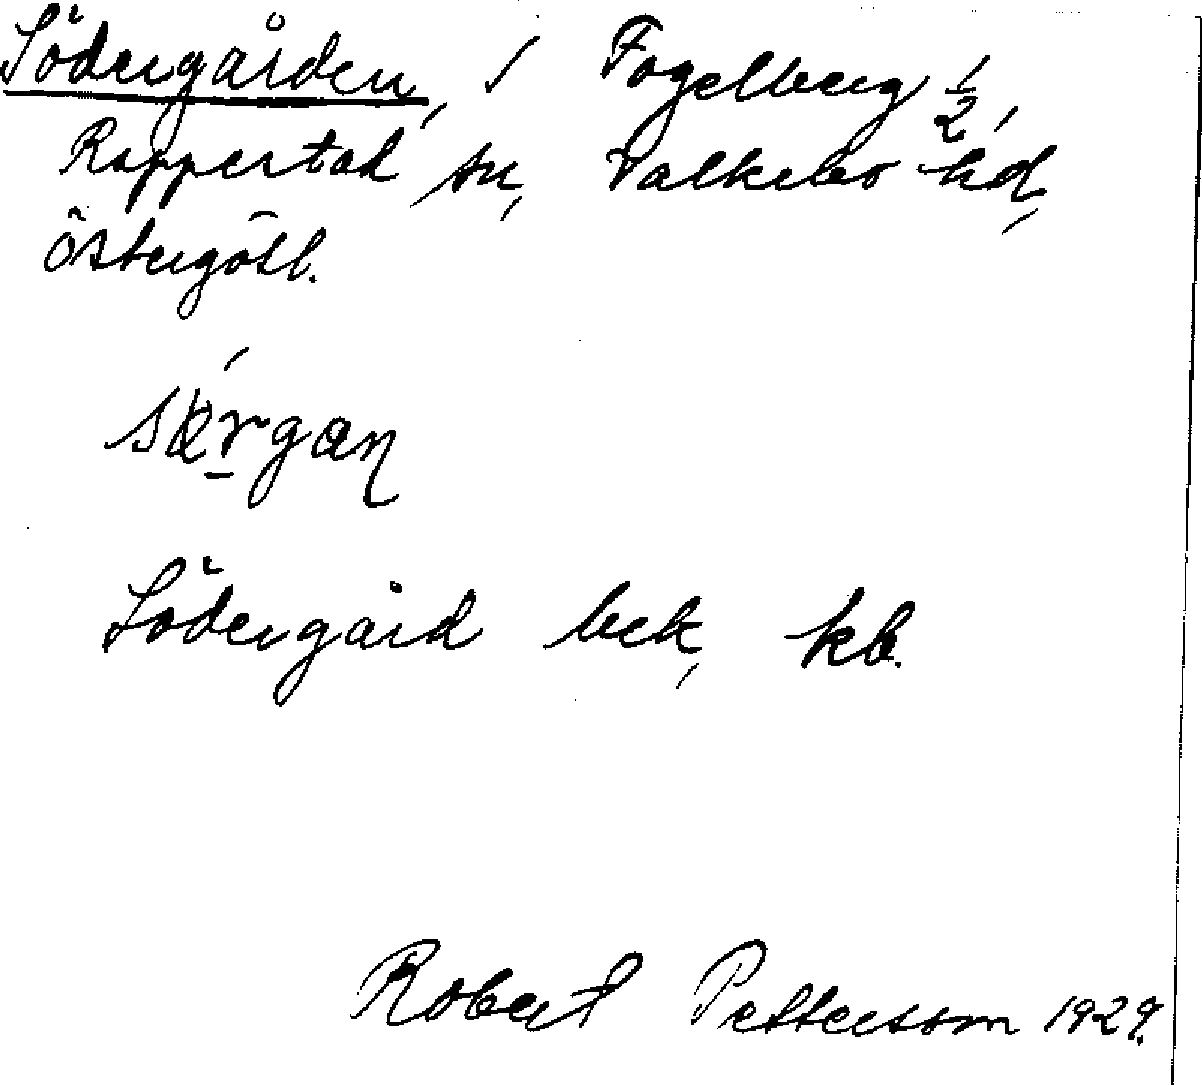 Södergården, i Fogelberg 1/2,
Rappestad sn, Valkebo hd,
Östergötl.
Södergård bek, kb.
Robert Pettersson 1929.